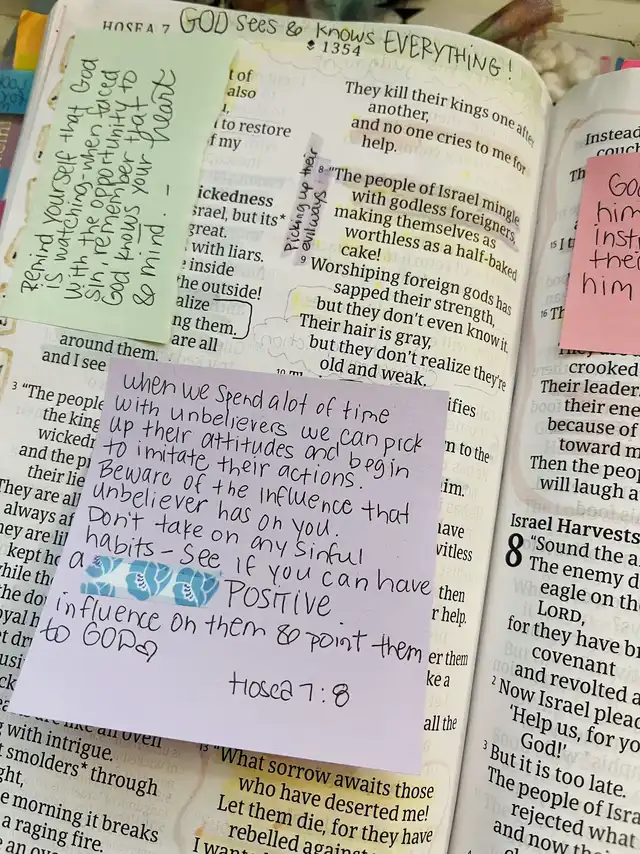 HOSEA 7
GOD sees & knows EVERYTHING!
1354
Remind yourself that God
is watching when faced
with the opportunity to
sin, remember that
God knows your heart
& mind. -
t of
also
to restore
f my
ickedness
srael, but its*
great.
with liars.
inside
he outside!
alize
ng them.
are all
around them.
and I see
3 "The people
the king
wicked
and the p
their lie
They are all
always a
they are li
kept h
while the
the do
royal h
with intrigue.
smolders* through
ght,
e morning it breaks
a raging fire.
They kill their kings one after
another,
and no one cries to me for
help.
Picking up their
evil ways
8 "The people of Israel mingle
with godless foreigners,
making themselves as
worthless as a half-baked
cake!
9 Worshiping foreign gods has
sapped their strength,
but they don't even know it.
Their hair is gray,
but they don't realize they're
old and weak.
10
ifies
n to the
im.
have
witless
then
r help.
er them
ke a
all the
when we spend a lot of time
with unbelievers we can pick
up their attitudes and begin
to imitate their actions.
Beware of the influence that
unbeliever has on you.
Don't take on any sinful
habits - see if you can have
a POSITIVE
influence on them & point them
to GOD
Hosea 7:8
13 "What sorrow awaits those
who have deserted me!
Let them die, for they have
rebelled against
Instead
couch
15 I t
16 Th
God
him
inst
thei
him
They are
crooked
Their leader
their ene
because of
toward m
Then the peop
will laugh a
Israel Harvests
8 "Sound the a
The enemy d
eagle on the
LORD,
for they have br
covenant
and revolted a
2 Now Israel plead
'Help us, for yo
God!'
3 But it is too late.
The people of Isra
rejected what
and now thei